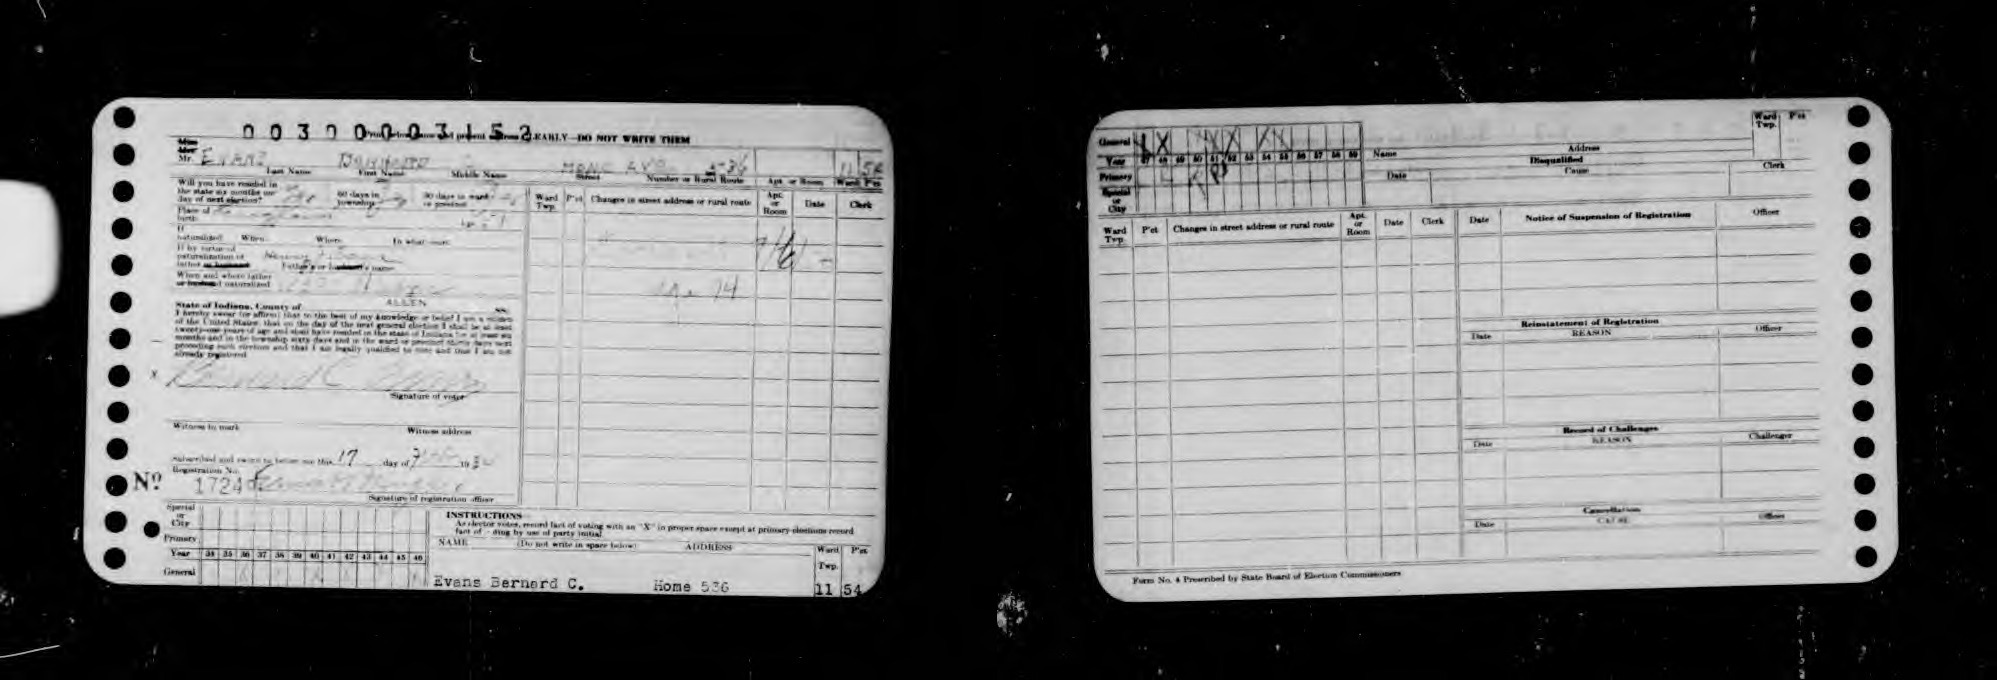 00300003152
CLEARLY—DO NOT WRITE THEM
Mr. EVANS BERNARD C HOME AVE 536 11 54
Last Name First Name Middle Name Street Number or Rural Route Apt. or Room Ward P'ct
Will you have resided in the state six months on day of next election? 60 days in township 30 days in ward or precinct
Place of birth
If naturalized When Where In what court
If by virtue of naturalization of father or husband Father's or husband's name
When and where father or husband naturalized
State of Indiana, County of ALLEN SS:
I hereby swear (or affirm) that to the best of my knowledge or belief I am a citizen
of the United States, that on the day of the next general election I shall be at least
twenty-one years of age and shall have resided in the state of Indiana for at least six
months and in the township sixty days and in the ward or precinct thirty days next
preceding such election and that I am legally qualified to vote and that I am not
already registered
x Bernard C Evans
Signature of voter
Witness to mark Witness address
Subscribed and sworn to before me this 17 day of 19
Registration No.
No 1724
Signature of registration officer
Ward Twp. P'ct Changes in street address or rural route Apt. or Room Date Clerk
Special or City
Primary
Year 34 35 36 37 38 39 40 41 42 43 44 45 46
General
INSTRUCTIONS
As elector votes, record fact of voting with an "X" in proper space except at primary elections record
fact of voting by use of party initial.
NAME (Do not write in space below) ADDRESS Ward Twp. P'ct
Evans Bernard C. Home 536 11 54
General X X X X X X X
Year 47 48 49 50 51 52 53 54 55 56 57 58 59
Primary
Special or City
Name Address Ward Twp. P'ct
Disqualified
Date Cause Clerk
Ward Twp. P'ct Changes in street address or rural route Apt. or Room Date Clerk
Date Notice of Suspension of Registration Officer
Reinstatement of Registration
Date REASON Officer
Record of Challenges
Date REASON Challenger
Cancellation
Date CAUSE Officer
Form No. 4 Prescribed by State Board of Election Commissioners